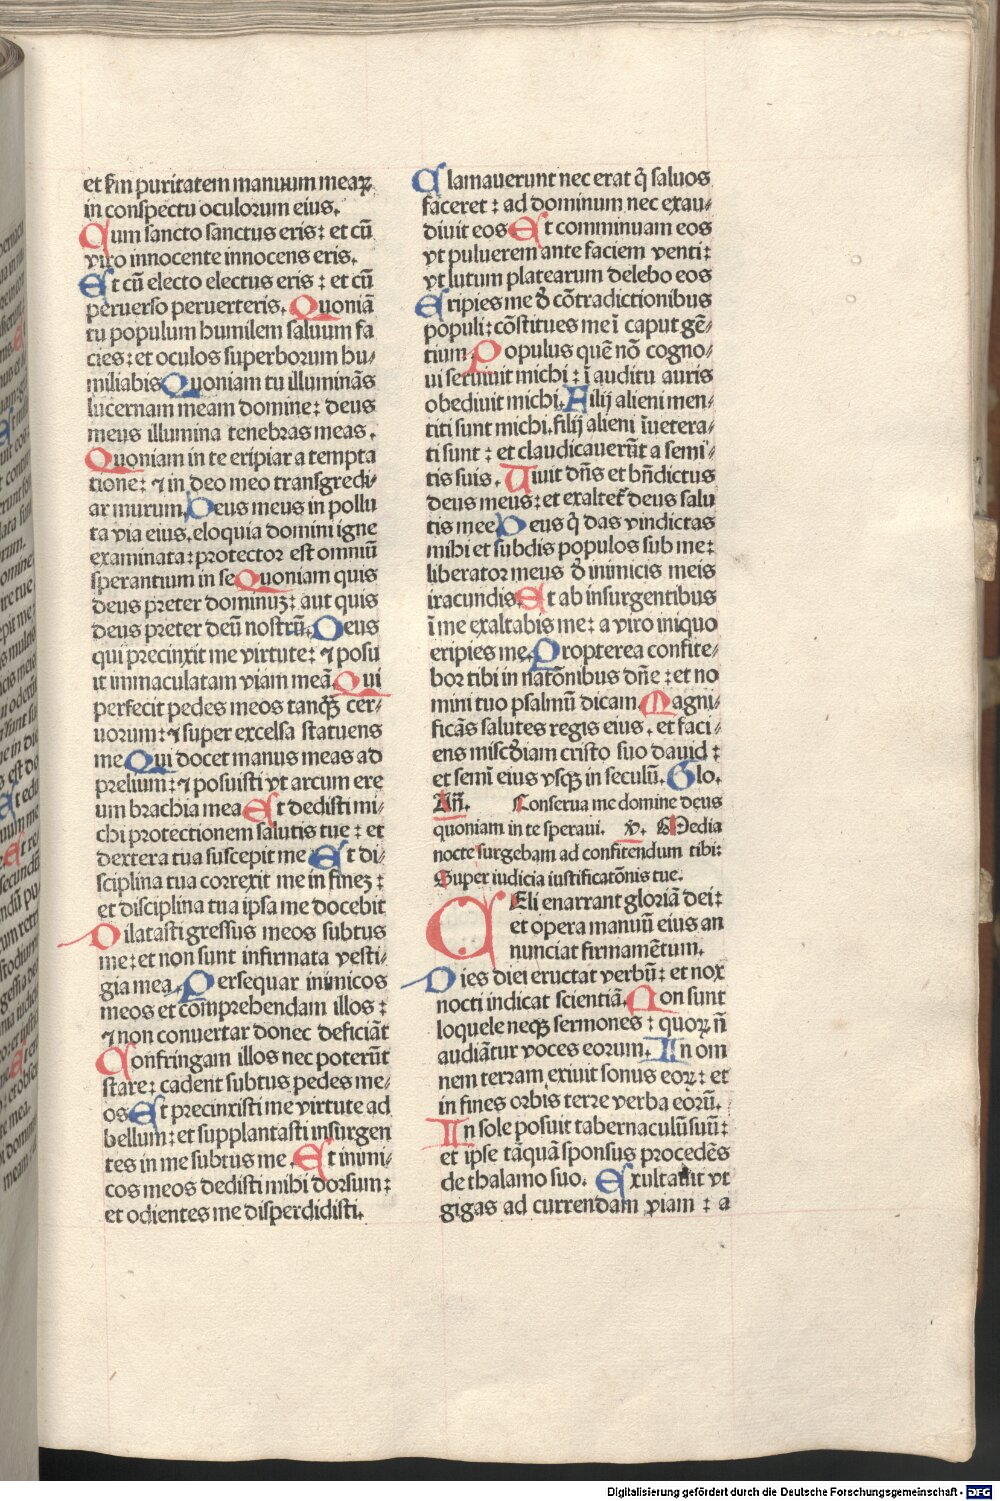 et ſcḋm puritatem manuum meaꝝ
in conſpectu oculorum eius.
Cum ſancto sanctus eris: et cū
viro innocente innocens eris.
Et cū electo electus eris : et cū
peruerſo peruerteris. Quoniā
tu populum humilem ſaluum fa
cies: et oculos ſuperborum hu⸗
miliabis Quoniam tu illuminās
lucernam meam domine: deus
meus illumina tenebras meas.
Quoniam in te eripiar a tempta
tione: ⁊ in deo meo transgredi⸗
ar murum. Deus meus in pollu
ta via eius. eloquia domini igne
examinata: protector eſt omniū
ſperantium in ſe Quoniam quis
deus preter dominuʒ: aut quis
deus preter deū noſtrū. Deus
qui precinxit me virtute: ⁊ poſu
it immaculatam viam meā. Qui
perfecit pedes meos tanqꝫ cer⸗
uorum: ⁊ ſuper excelſa ſtatuens
me Qui docet manus meas ad
prelium: ⁊ poſuiſti vt arcum ere
um brachia mea Et dediſti mi⸗
chi protectionem ſalutis tue : et
dextera tua ſuſcepit me Et di⸗
ſciplina tua correxit me in fineʒ :
et diſciplina tua ipſa me docebit
Dilataſti greſſus meos ſubtus
me: et non ſunt infirmata veſti⸗
gia mea. Perſequar inimicos
meos et comprehendam illos :
⁊ non conuertar donec deficiāt
Confringam illos nec poterūt
ſtare: cadent ſubtus pedes me⸗
os Et precinxiſti me virtute ad
bellum: et ſupplantaſti inſurgen
tes in me ſubtus me. Et inimi⸗
cos meos dediſti mihi dorſum:
et odientes me diſperdidiſti.
Clamauerunt nec erat q̄ ſaluos
faceret : ad dominum nec exau⸗
diuit eos Et comminuam eos
vt puluerem ante faciem venti:
vt lutum platearum delebo eos
Eripies me ď cōtradictionibus
populi: cōſtitues me ī caput gē⸗
tium Populus quē nō cogno⸗
ui ſeruiuit michi : ī auditu auris
obediuit michi. Filij alieni men⸗
titi ſunt michi. filij alieni īuetera⸗
ti ſunt : et claudicauerūt a ſemi⸗
tis ſuis. Uiuit dn̄s et bn̄dictus
deus meus: et exaltet᷑ deus ſalu
tis mee Deus q̄ das vindictas
mihi et ſubdis populos ſub me:
liberator meus ď inimicis meis
iracundis. Et ab inſurgentibus
ī me exaltabis me: a viro iniquo
eripies me. Propterea confite⸗
bor tibi in natōnibus dn̄e : et no
mini tuo pſalmū dicam Magni⸗
ficās ſalutes regis eius. et faci⸗
ens miſcďiam criſto ſuo dauid :
et ſemī eius vſqꝫ in ſeculū. Glo.
Añ. Conſerua me domine deus
quoniam in te ſperaui. v̄. Media
nocte ſurgebam ad confitendum tibi:
Super iudicia iuſtificatōnis tue.
CEli enarrant gloriā dei:
et opera manuū eius an
nunciat firmamētum.
Dies diei eructat verbū: et nox
nocti indicat ſcientiā. Non ſunt
loquele neqꝫ ſermones : quoꝝ n̄
audiātur voces eorum. In om
nem terram exiuit ſonus eoꝝ: et
in fines orbis terre verba eorū.
In ſole poſuit tabernaculū ſuū:
et ipſe tāquā ſponſus procedēs
de thalamo ſuo. Exultauit vt
gigas ad currendam viam : a
Digitalisierung gefördert durch die Deutsche Forschungsgemeinschaft - DFG